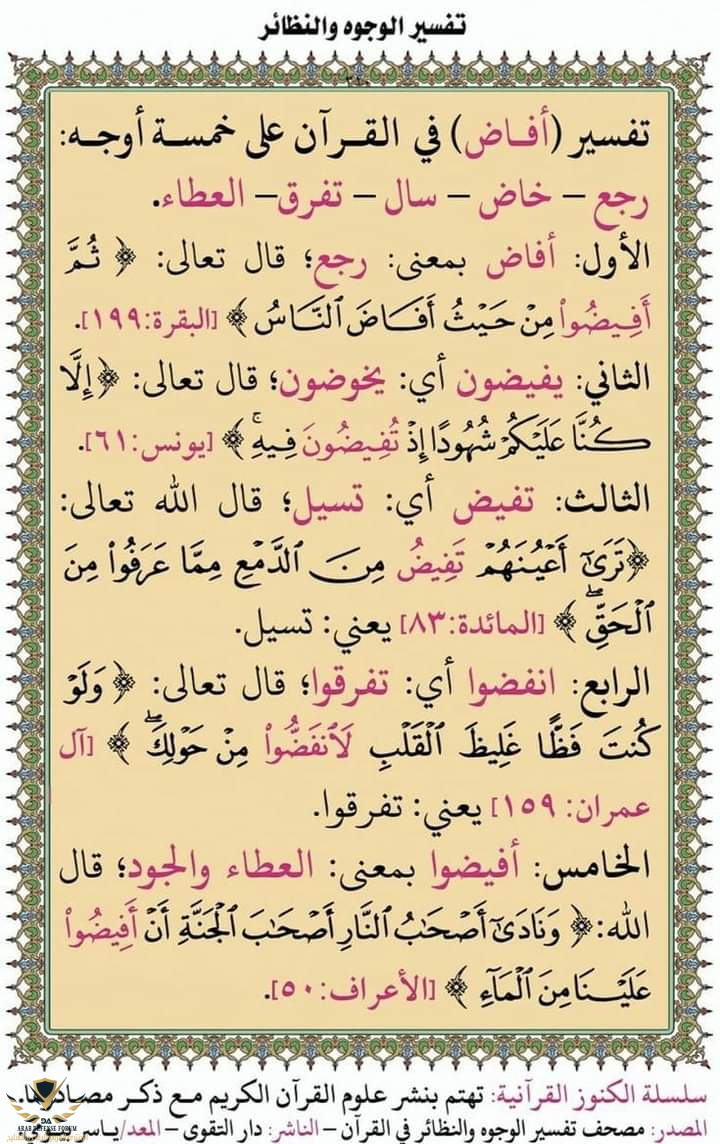 تفسير الوجوه والنظائر
تفسير (أفاض) في القرآن على خمسة أوجه:
رجع - خاض - سال - تفرق - العطاء.
الأول: أفاض بمعنى: رجع؛ قال تعالى: ﴿ ثُمَّ
أَفِيضُواْ مِنْ حَيْثُ أَفَاضَ ٱلنَّاسُ ﴾ [البقرة:١٩٩].
الثاني: يفيضون أي: يخوضون؛ قال تعالى: ﴿ إِلَّا
كُنَّا عَلَيْكُمْ شُهُودًا إِذْ تُفِيضُونَ فِيهِۚ ﴾ [يونس:٦١].
الثالث: تفيض أي: تسيل؛ قال الله تعالى:
﴿ تَرَىٰٓ أَعْيُنَهُمْ تَفِيضُ مِنَ ٱلدَّمْعِ مِمَّا عَرَفُواْ مِنَ
ٱلْحَقِّۖ ﴾ [المائدة:٨٣] يعني: تسيل.
الرابع: انفضوا أي: تفرقوا؛ قال تعالى: ﴿ وَلَوْ
كُنتَ فَظًّا غَلِيظَ ٱلْقَلْبِ لَٱنفَضُّواْ مِنْ حَوْلِكَۖ ﴾ [آل
عمران: ١٥٩] يعني: تفرقوا.
الخامس: أفيضوا بمعنى: العطاء والجود؛ قال
الله: ﴿ وَنَادَىٰٓ أَصْحَٰبُ ٱلنَّارِ أَصْحَٰبَ ٱلْجَنَّةِ أَنْ أَفِيضُواْ
عَلَيْنَا مِنَ ٱلْمَآءِ ﴾ [الأعراف:٥٠].
سلسلة الكنوز القرآنية: تهتم بنشر علوم القرآن الكريم مع ذكر مصادرها..
المصدر: مصحف تفسير الوجوه والنظائر في القرآن - الناشر: دار التقوى - المعد/ياسر
ARAB DEFENSE FORUM